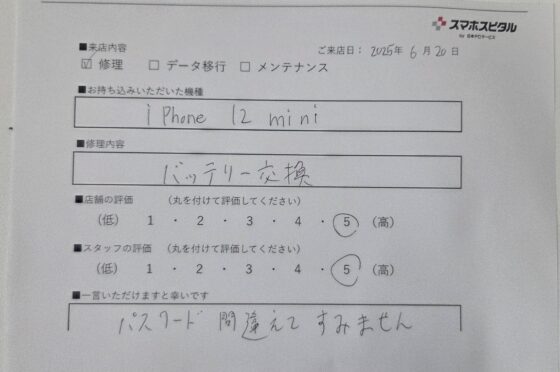 スマホスピタル
by 日本PCサービス
■来店内容 ご来店日: 2025年 6月 20日
☑ 修理 □ データ移行 □ メンテナンス
■お持ち込みいただいた機種
iPhone 12 mini
■修理内容
バッテリー交換
■店舗の評価 (丸を付けて評価してください)
(低) 1 ・ 2 ・ 3 ・ 4 ・ 5 (高)
■スタッフの評価 (丸を付けて評価してください)
(低) 1 ・ 2 ・ 3 ・ 4 ・ 5 (高)
■一言いただけますと幸いです
パスワード 間違えて すみません